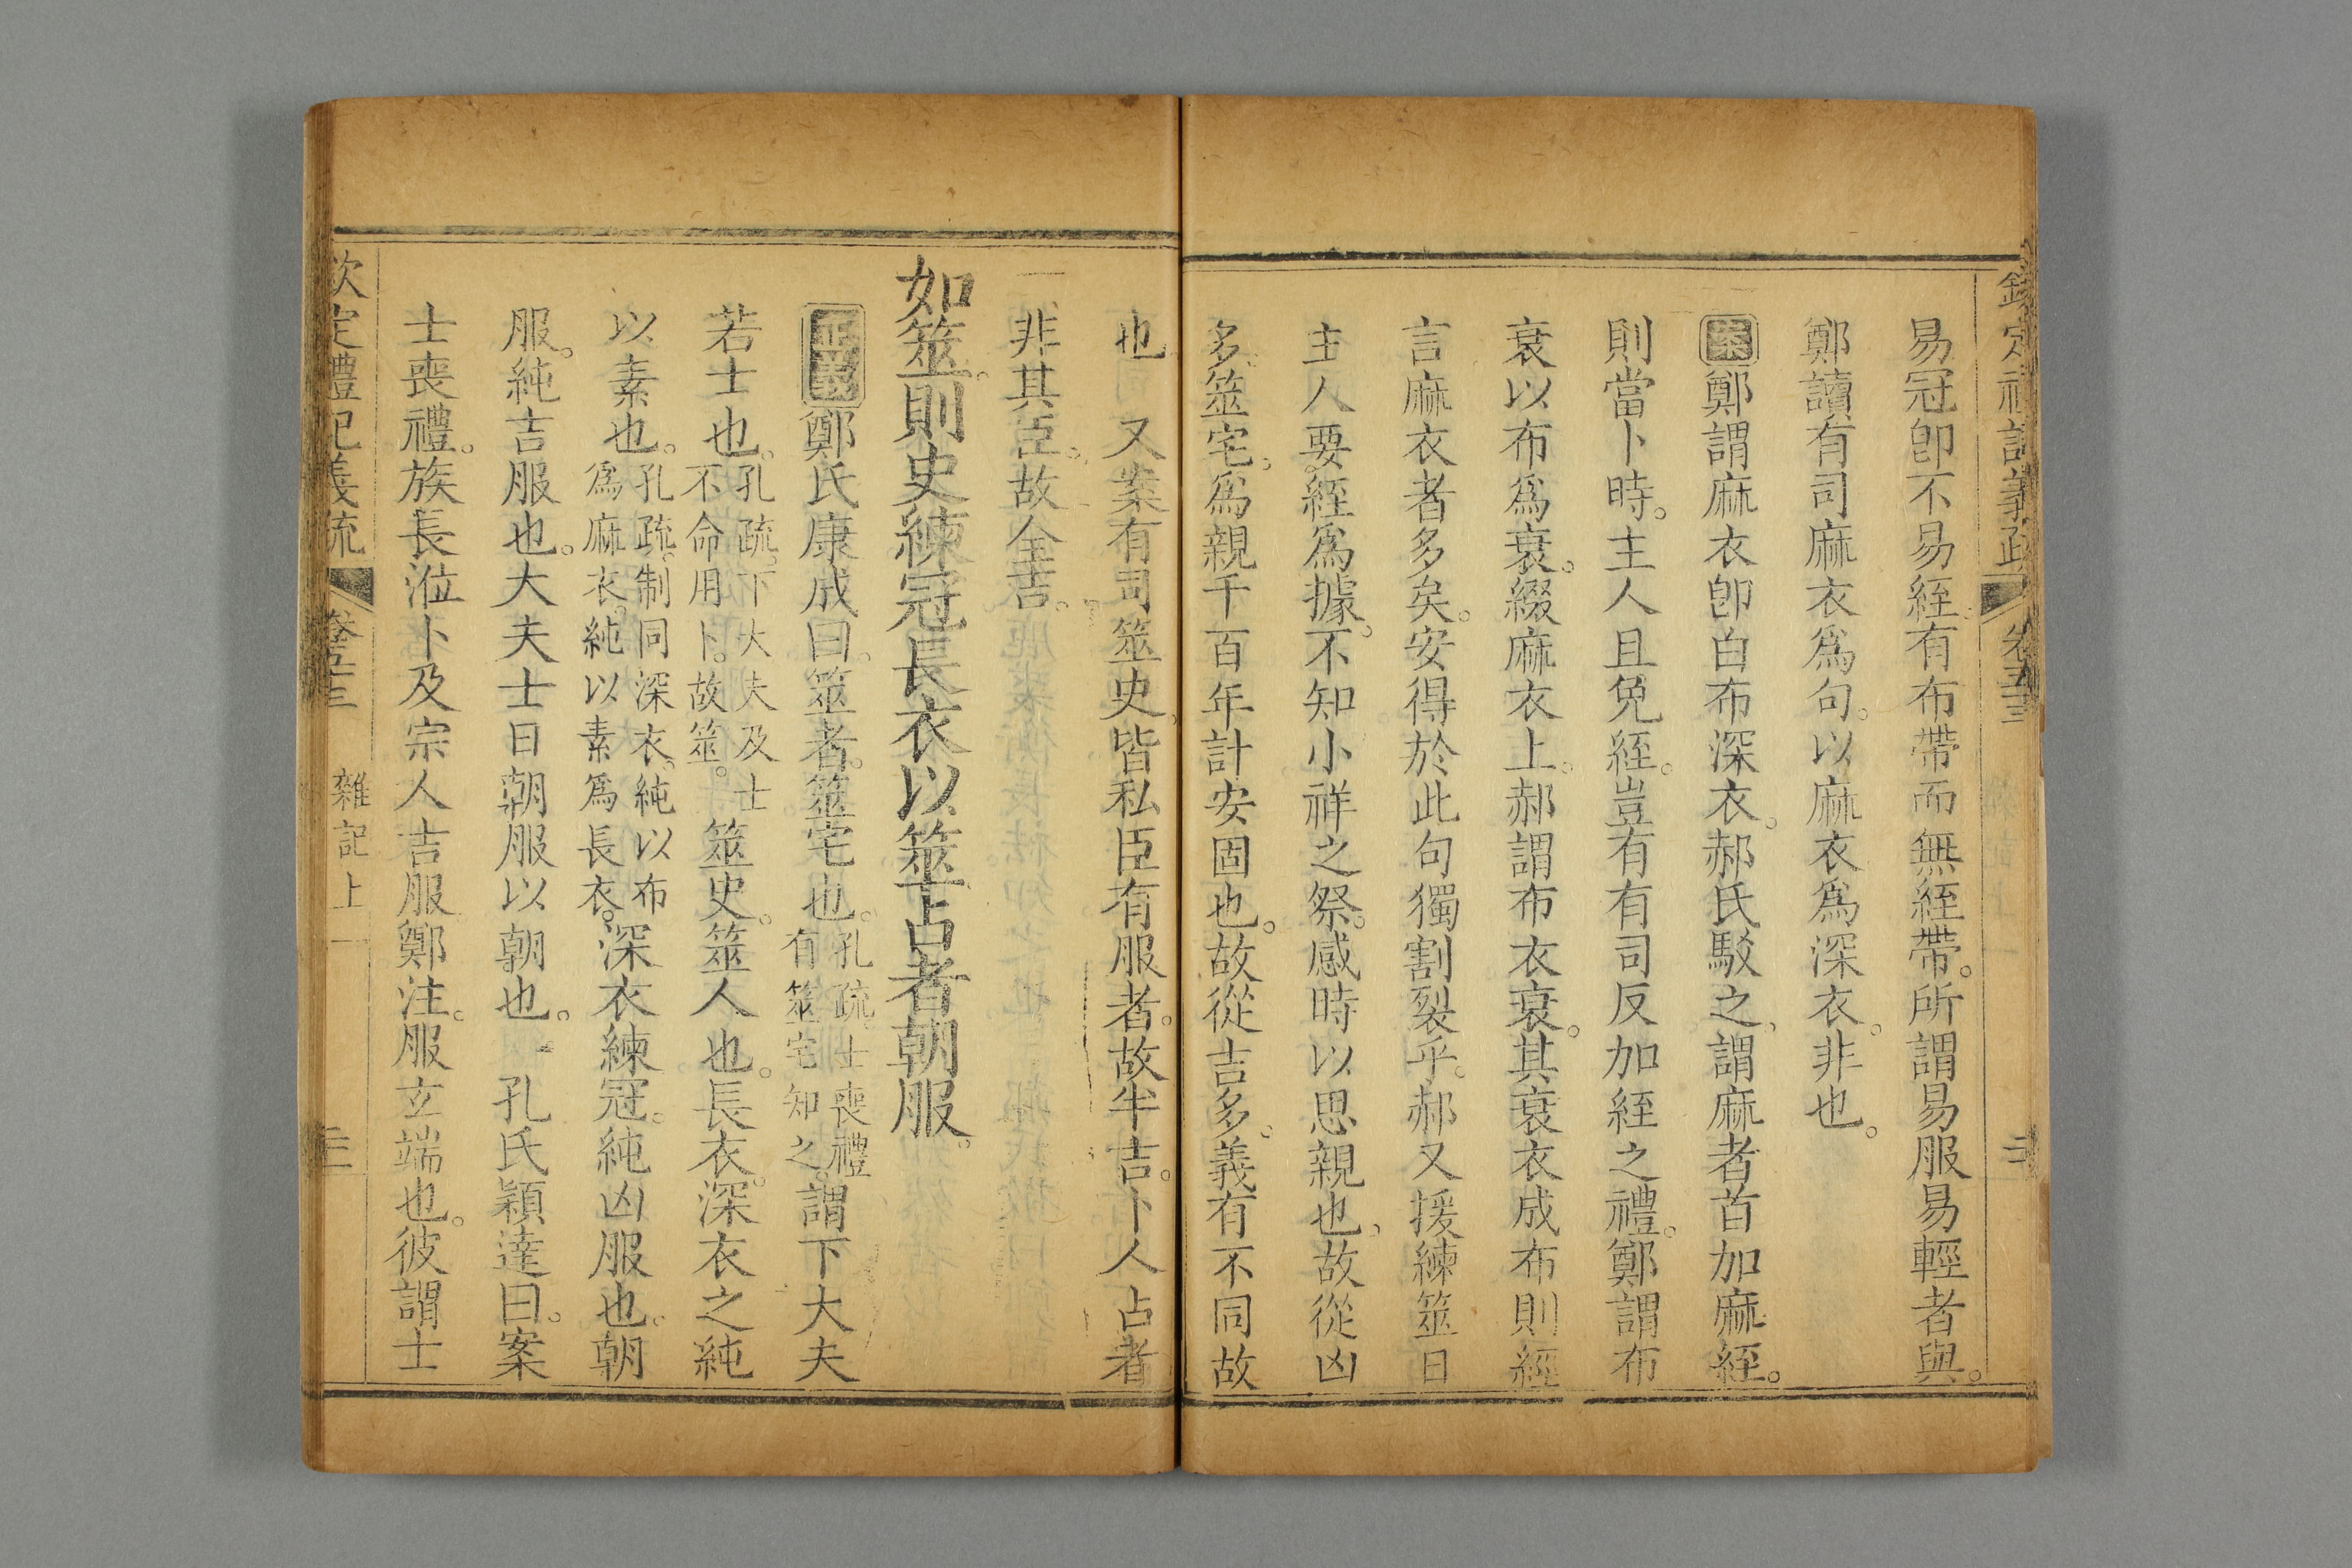 易冠卽不易絰有布帶而無絰帶。所謂易服易輕者與。
鄭讀有司麻衣爲句。以麻衣爲深衣。非也。
案鄭謂麻衣卽白布深衣。郝氏駁之、謂麻者首加麻絰。
則當卜時。主人且免絰。豈有有司反加絰之禮。鄭謂布
衰以布爲衰。綴麻衣上。郝謂布衣衰。其衰衣成布則經
言麻衣者多矣。安得於此句獨割裂乎。郝又援練筮日
主人要絰爲據。不知小祥之祭。感時以思親也、故從凶
多。筮宅。爲親千百年計安固也。故從吉多。義有不同故
也 又案有司筮史皆私臣有服者。故半吉。卜人占者
非其臣。故全吉。
如筮則史練冠長衣以筮占者朝服。
正義鄭氏康成曰。筮者。筮宅也。孔疏士喪禮有筮宅知之。謂下大夫
若士也。孔疏。下大夫及士不命用卜。故筮。筮史。筮人也。長衣。深衣之純
以素也。孔疏。制同深衣。純以布爲麻衣。純以素爲長衣。深衣練冠。純凶服也。朝
服。純吉服也。大夫士日朝服以朝也。 孔氏穎達曰。案
士喪禮。族長涖卜及宗人吉服鄭注。服玄端也。彼謂士
欽定禮記義疏 卷五十三 雜記上 一 三